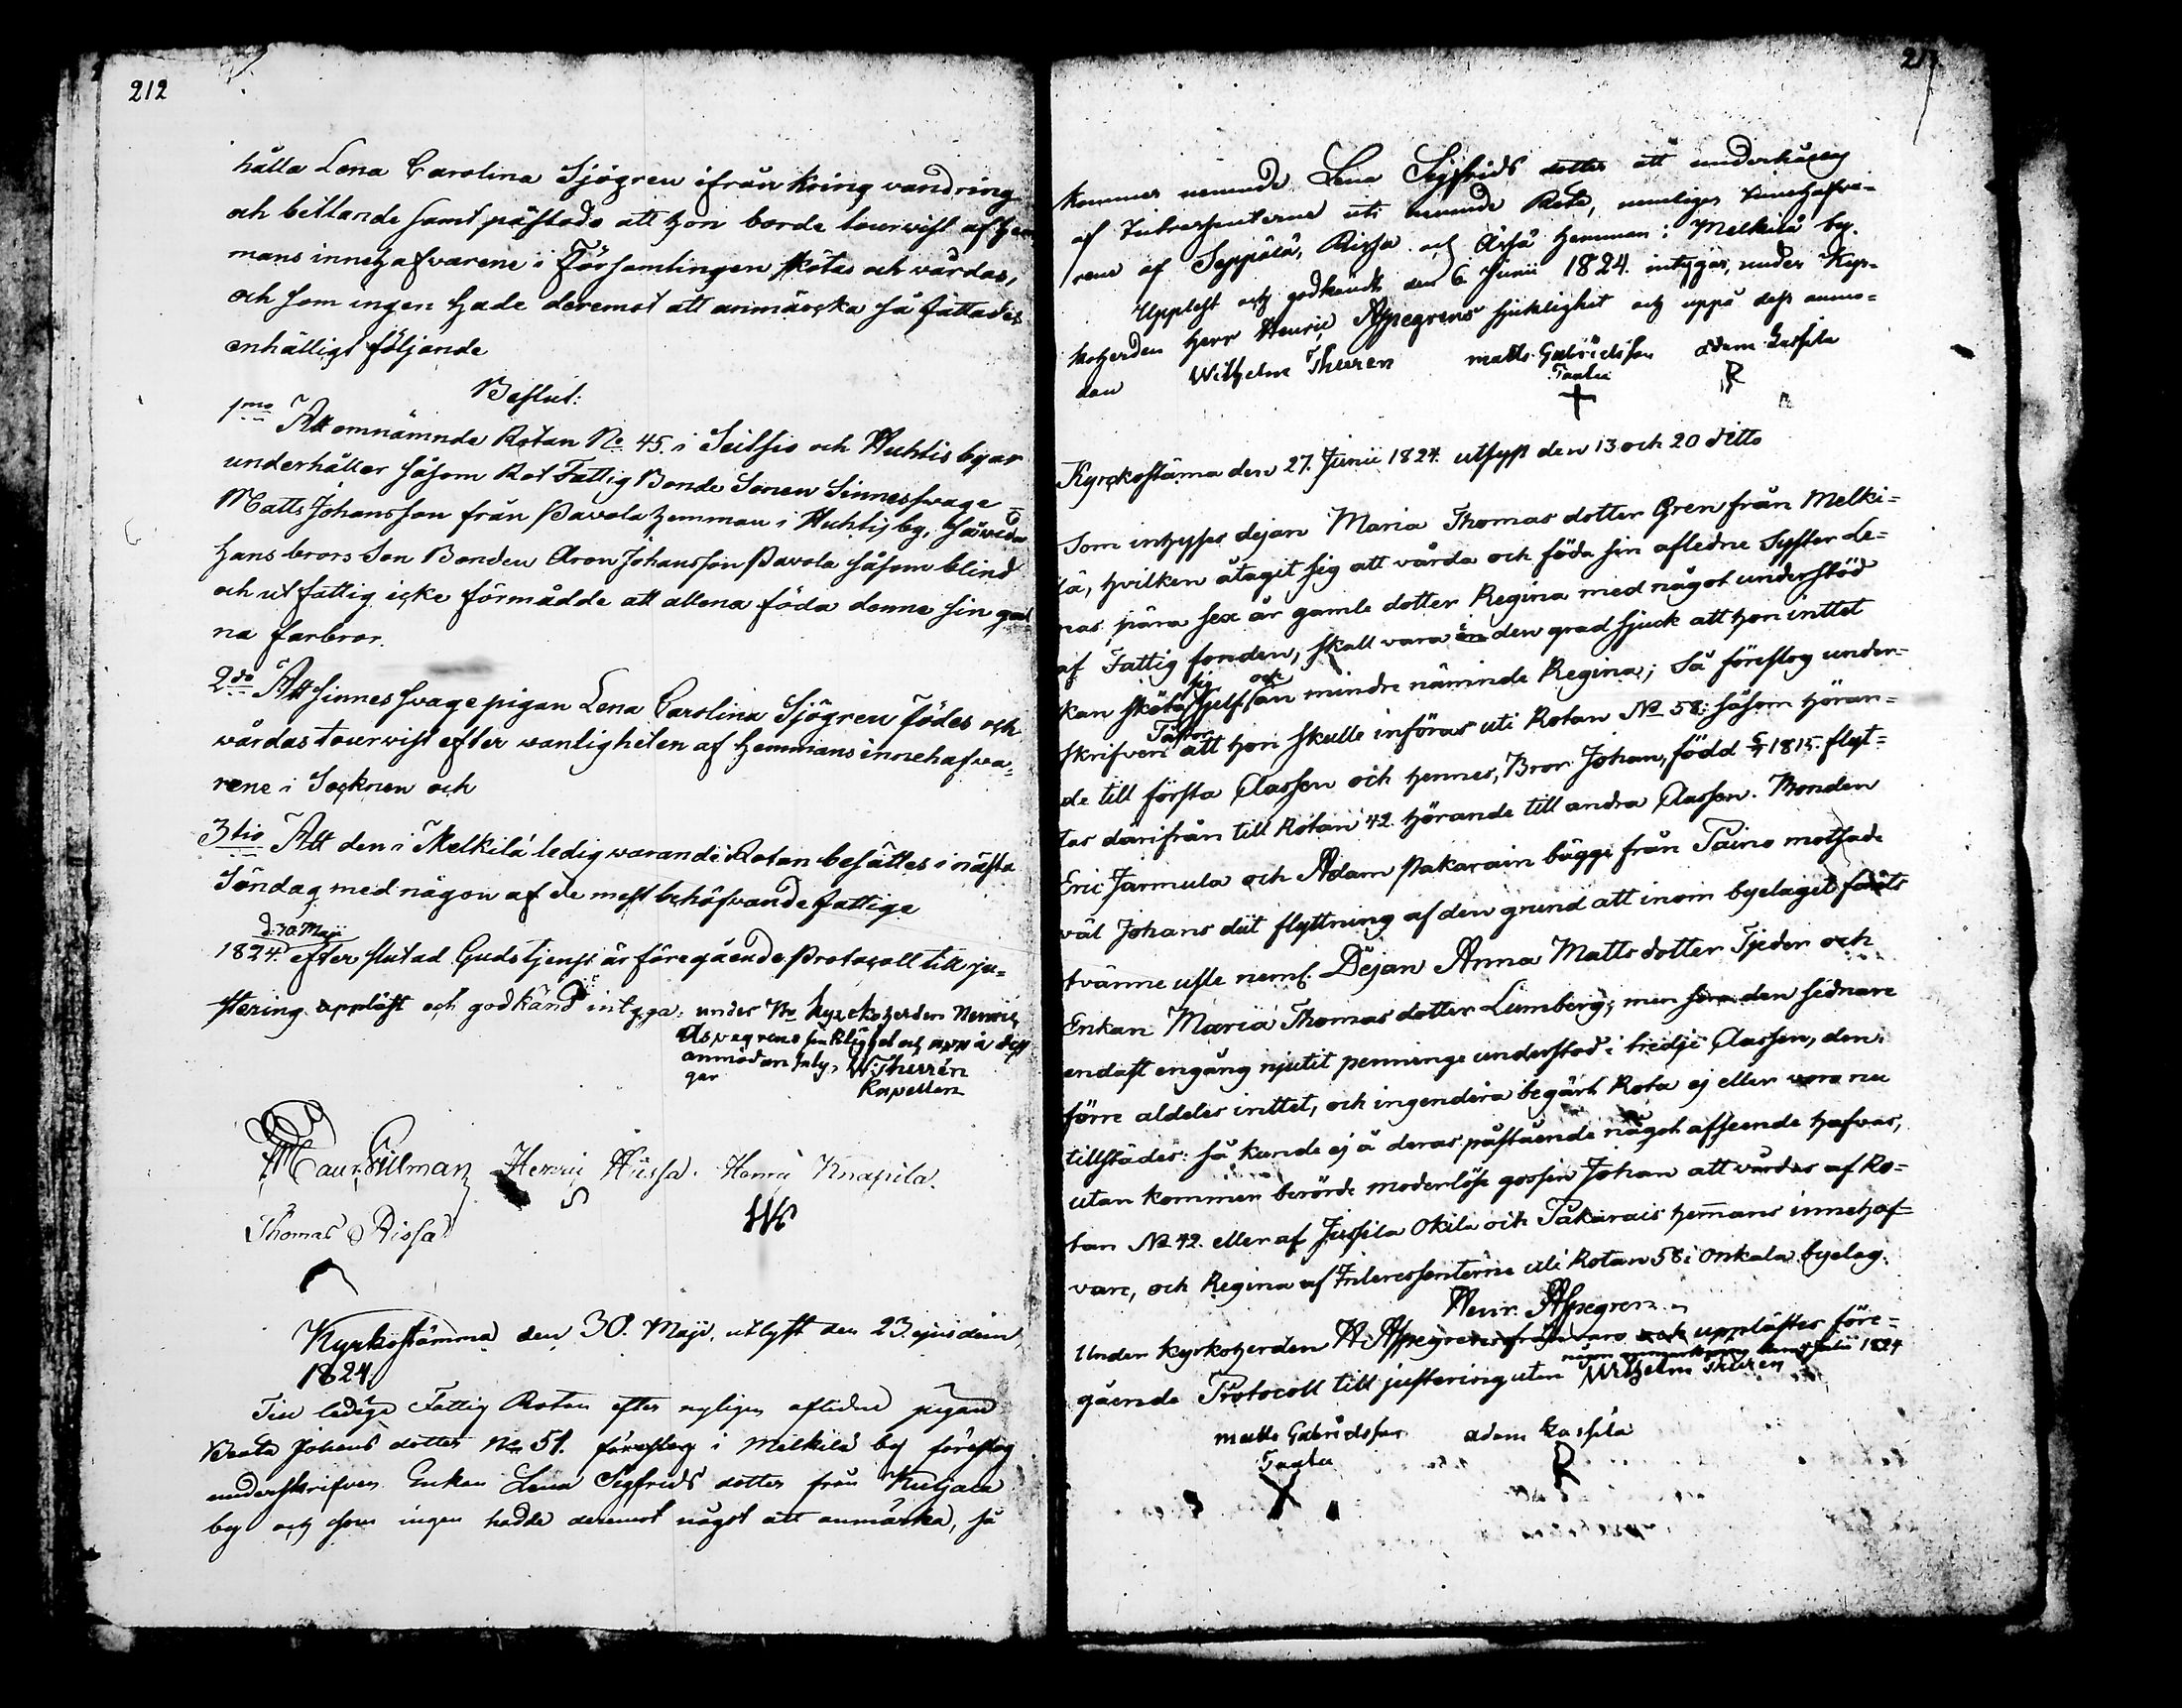 212
hålla Lena Carolina Sjögren ifrån kring vandring
och bettlande samt påstods att hon borde tourvist af hem
mans innehafvarene i Församlingen skötas och vårdas,
och som ingen hade deremot att anmärcka så fattades
enhälligt följande
Beslut:
1mo Att omnämnde Rotan No 45. i Seilsio och Huhtis byar
underhåller såsom Rot Fattig Bonde Sonen Sinnessvage
Matts Johansson från Pavola hemman i Huhtis by,
hans brors Son Bonden Aron Johansson Pavola såsom blind
och utfattig icke förmådde att allena föda denne sin gal
na farbror.
2do Att sinnessvage pigan Lena Carolina Sjögren födes och
vårdas tourvist efter vanligheten af hemmans innehafva=
rene i Socknen och
3tio Att den i Melkilä ledig varande Rotan besättes i nästa
Söndag med någon af de mest behöfvande fattige
d. 30 Maji
1824 efter slutad Gudstjenst är föregående Protocoll till ju=
stering uppläst och godkänd intyga: under Kyrckoherden Henric
Aspegrens sjuklighet och uppå dess
anmodan intygar W. Thuren
Kapellan
Maur. Gillman Henric Hussa. Henric Knapila.
Thomas Rissa
Kyrkostämma den 30. Maji, utlyst den 23. ejusdem
1824.
Till ledige Fattig Rotan efter nyligen aflidne pigan
Beata Johans dotter No 51. i Melkilä by föreslog
underskrifven Enkan Lena Sigfrids dotter från Kutjala
by och som ingen hadde deremot något att anmärka, så
kommer nemnde Lena Sigfrids dotter att underhållas
af Interessenterne uti nemnde Rote, nemligen innehafva=
rene af Seppälä, Rissa och Ärfä hemman i Melkilä by.
Uppläst och godkändt den 6 Junii 1824. intygar, under Kyr=
koherden Herr Henric Aspegrens sjuklighet och uppå dess anmo=
dan Wilhelm Thuren matts Gabrielsson adam Kassila
Taatu R
Kyrckostäma den 27. Junii 1824. utlyst den 13 och 20 ditto
Som inhyses dejan Maria Thomas dotter Gren från Melki=
lä, hvilken åtagit sig att vårda och föda sin afledne Syster Le=
nas pära sex år gamle dotter Regina med något understöd
af Fattig fonden, skall vara den grad sjuk att hon inttet
sig och
kan sköta sjelf än mindre nämnde Regina; Så föreslog under=
Pastor
skrifven att hon skulle införas uti Rotan No 58: såsom höran=
de till första Classen och hennes, Bror Johan, född 1815. flyt=
tas därifrån till Rotan 42. hörande till andra Classen. Bonden
Eric Jarmula och Adam Pakarain bägge från Paino motsade
väl Johans dit flyttning af den grund att inom byelaget fants
tvänne usle neml. Dejan Anna Matts dotter Tjeder och
Enkan Maria Thomas dotter Lumberg; men som den sednare
endast engång njutit penninge understöd i tredje Classen, den
förre aldeles inttet, och ingendera begärt Rota ej eller vore nu
tillstädes: så kunde ej å deras påstående något afseende hafvas,
utan kommer berörde moderlöse gossen Johan att vårdas af Ro=
tan No 42. eller af Jussila Okila och Pakarais hemans innehaf=
vare, och Regina af Interessenterne uti Rotan 58 i Onkala byelag.
Henr. Aspegren
Under Kyrkoherden H. Aspegrens frånvaro upplästes före=
gående Protocoll till justering utan någon anmärkning Julii 1824
Wilhelm Thuren
matts Gabrielsson adam Kassila
Taatu R
X